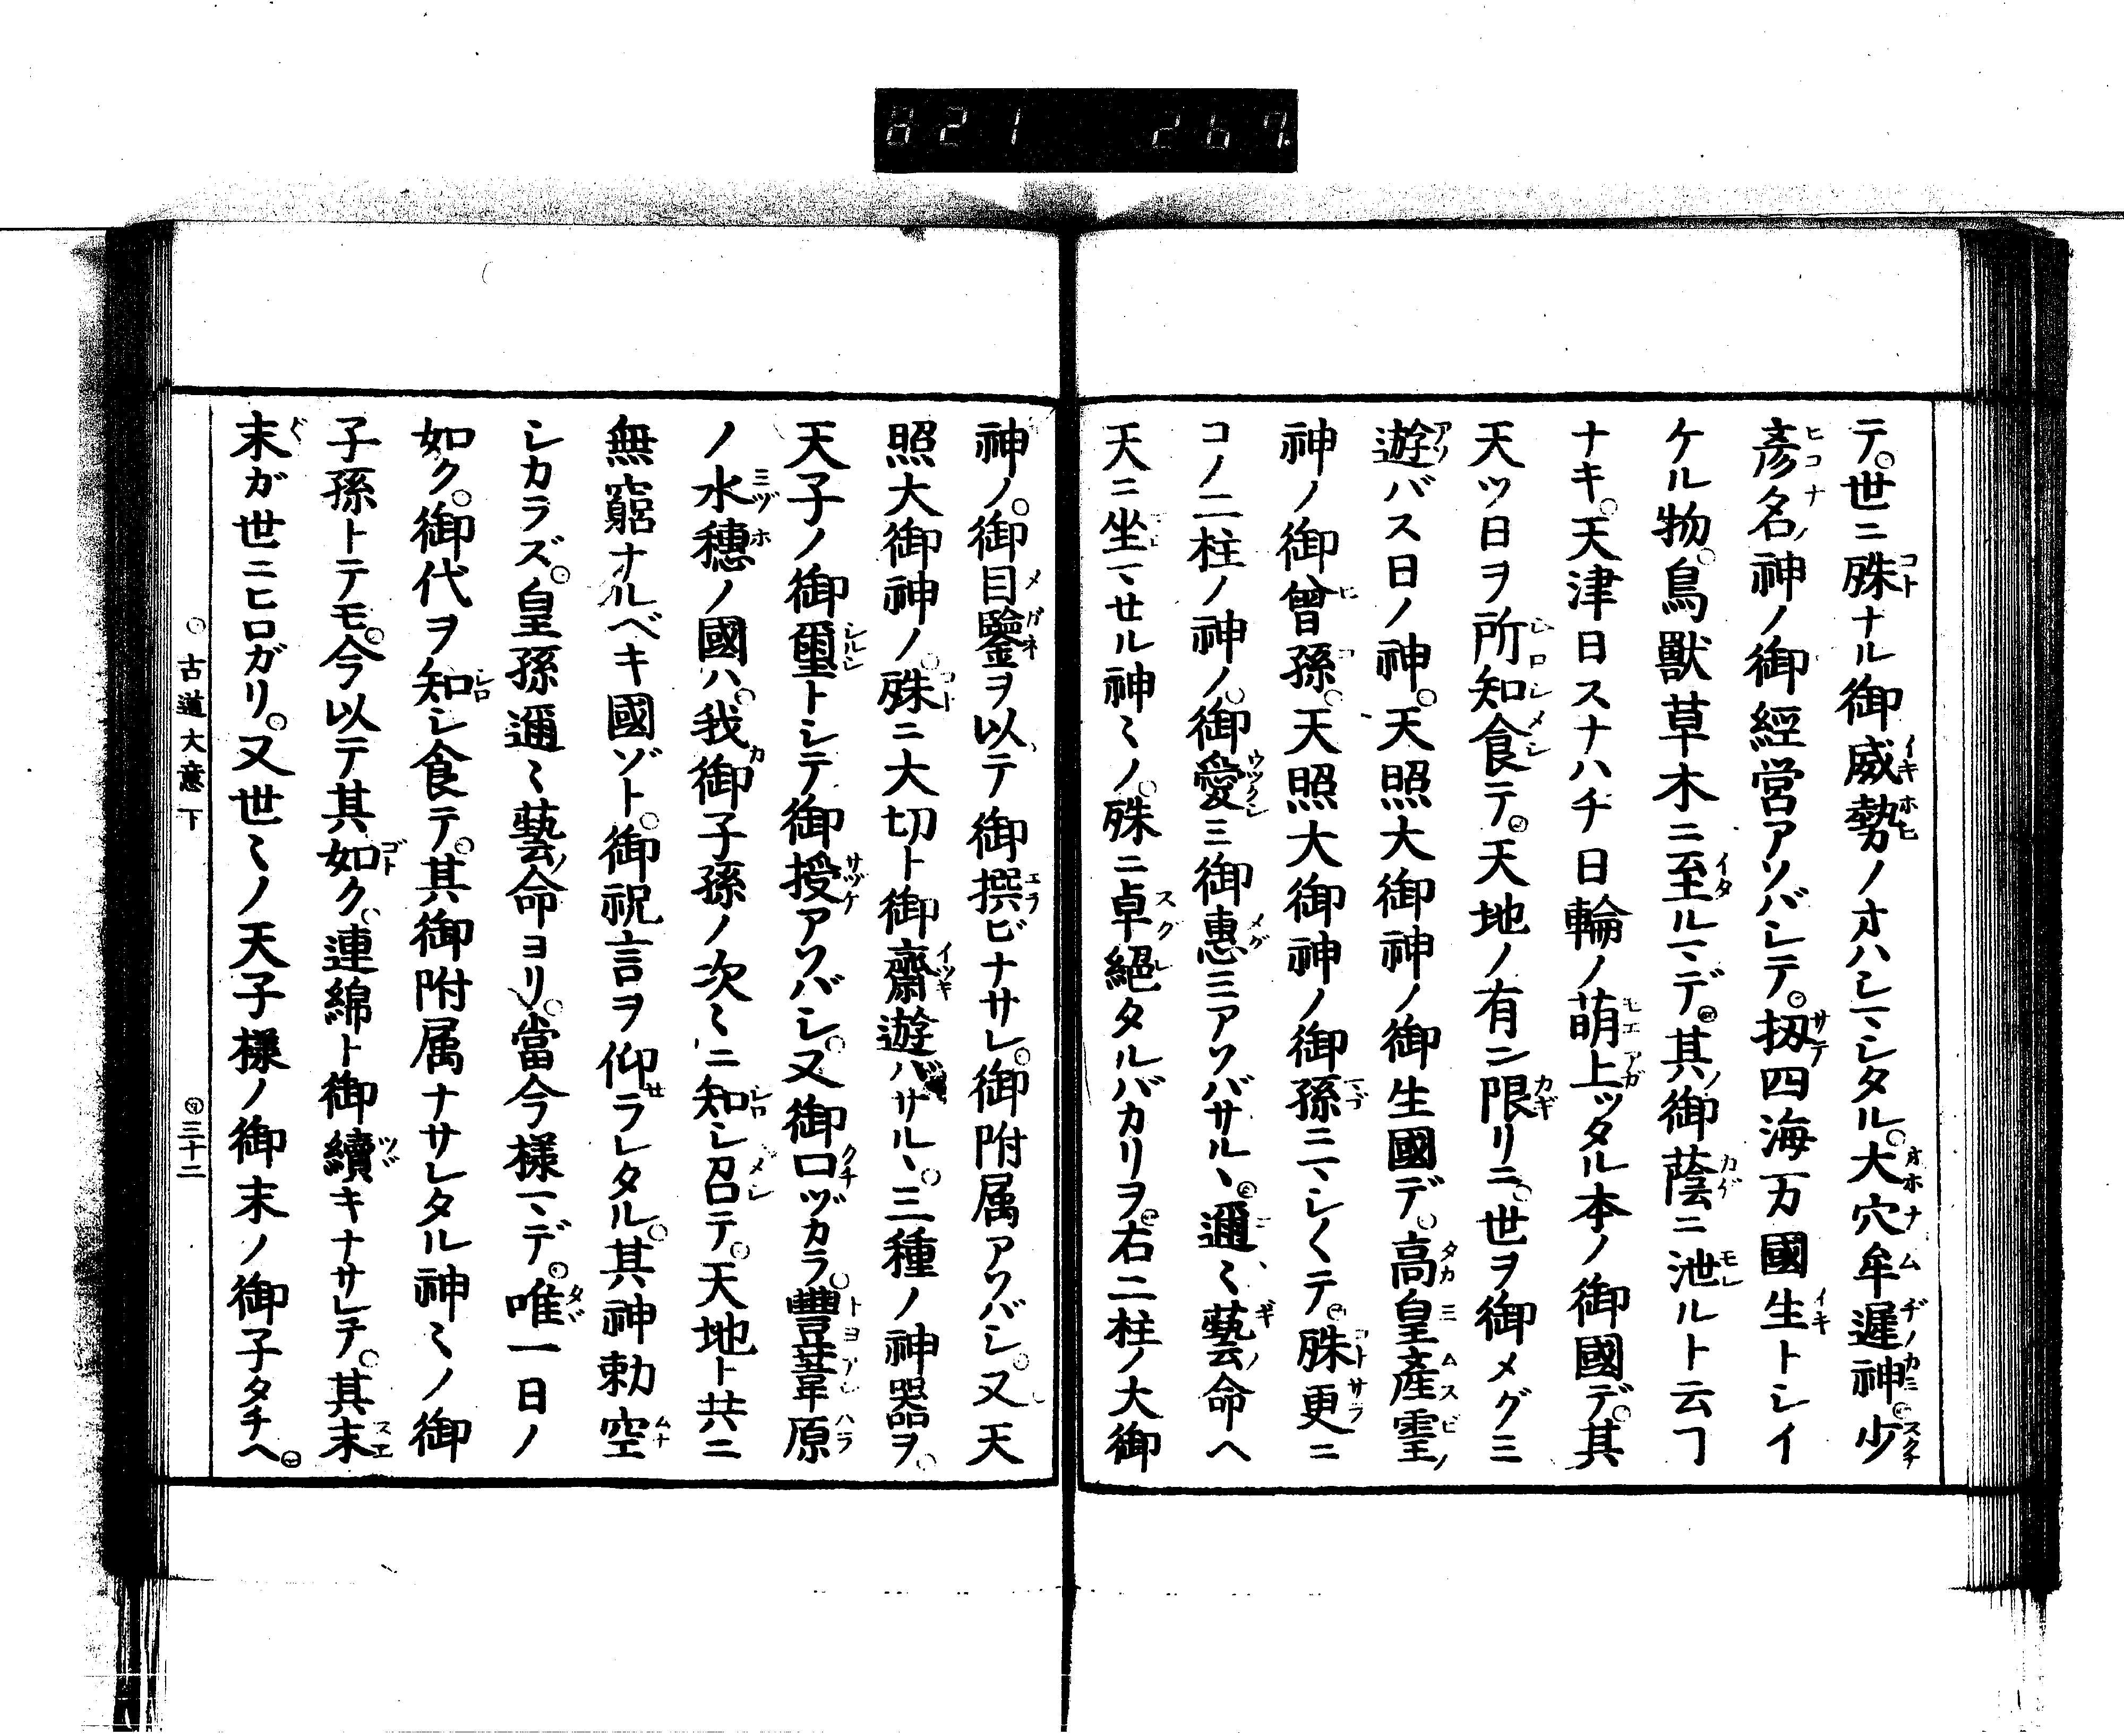 821 267
テ。世ニ殊ナル御威勢ノオハシマシタル。大穴牟遲神。少
彥名ノ神ノ御經営アソバシテ。扨四海万國生トシイ
ケル物。鳥獸草木ニ至ルマデ。其ノ御蔭ニ洩ルト云ヿ
ナキ。天津日スナハチ日輪ノ萌上ッタル本ノ御國デ。其
天ツ日ヲ所知食テ。天地ノ有ン限リニ。世ヲ御メグミ
遊バス日ノ神。天照大御神ノ御生國デ。高皇產霊ノ
神ノ御曾孫。天照大御神ノ御孫ニマシ〳〵テ。殊更ニ
コノ二柱ノ神ノ。御愛ミ御惠ミアソバサル丶。邇々藝ノ命ヘ
天ニ坐マセル神々ノ。殊ニ卓絕タルバカリヲ。右二柱ノ大御
神ノ。御目鑒ヲ以テ御撰ビナサレ。御附属アソバシ。又天
照大御神ノ。殊ニ大切ト御齋遊バサル丶。三種ノ神器ヲ。
天子ノ御璽トシテ御授アソバシ。又御口ヅカラ。豐葦原
ノ水穗ノ國ハ。我御子孫ノ次々ニ知シ召テ。天地ト共ニ
無窮ナルベキ國ゾト。御祝言ヲ仰セラレタル。其神勅空
シカラズ。皇孫邇々藝ノ命ヨリ。當今樣マデ。唯一日ノ
如ク。御代ヲ知シ食テ。其御附属ナサレタル神々ノ御
子孫トテモ。今以テ其如ク。連綿ト御續キナサレテ。其末
末ガ世ニヒロガリ。又世々ノ天子樣ノ御末ノ御子タチヘ。
○古道大意下 三十二